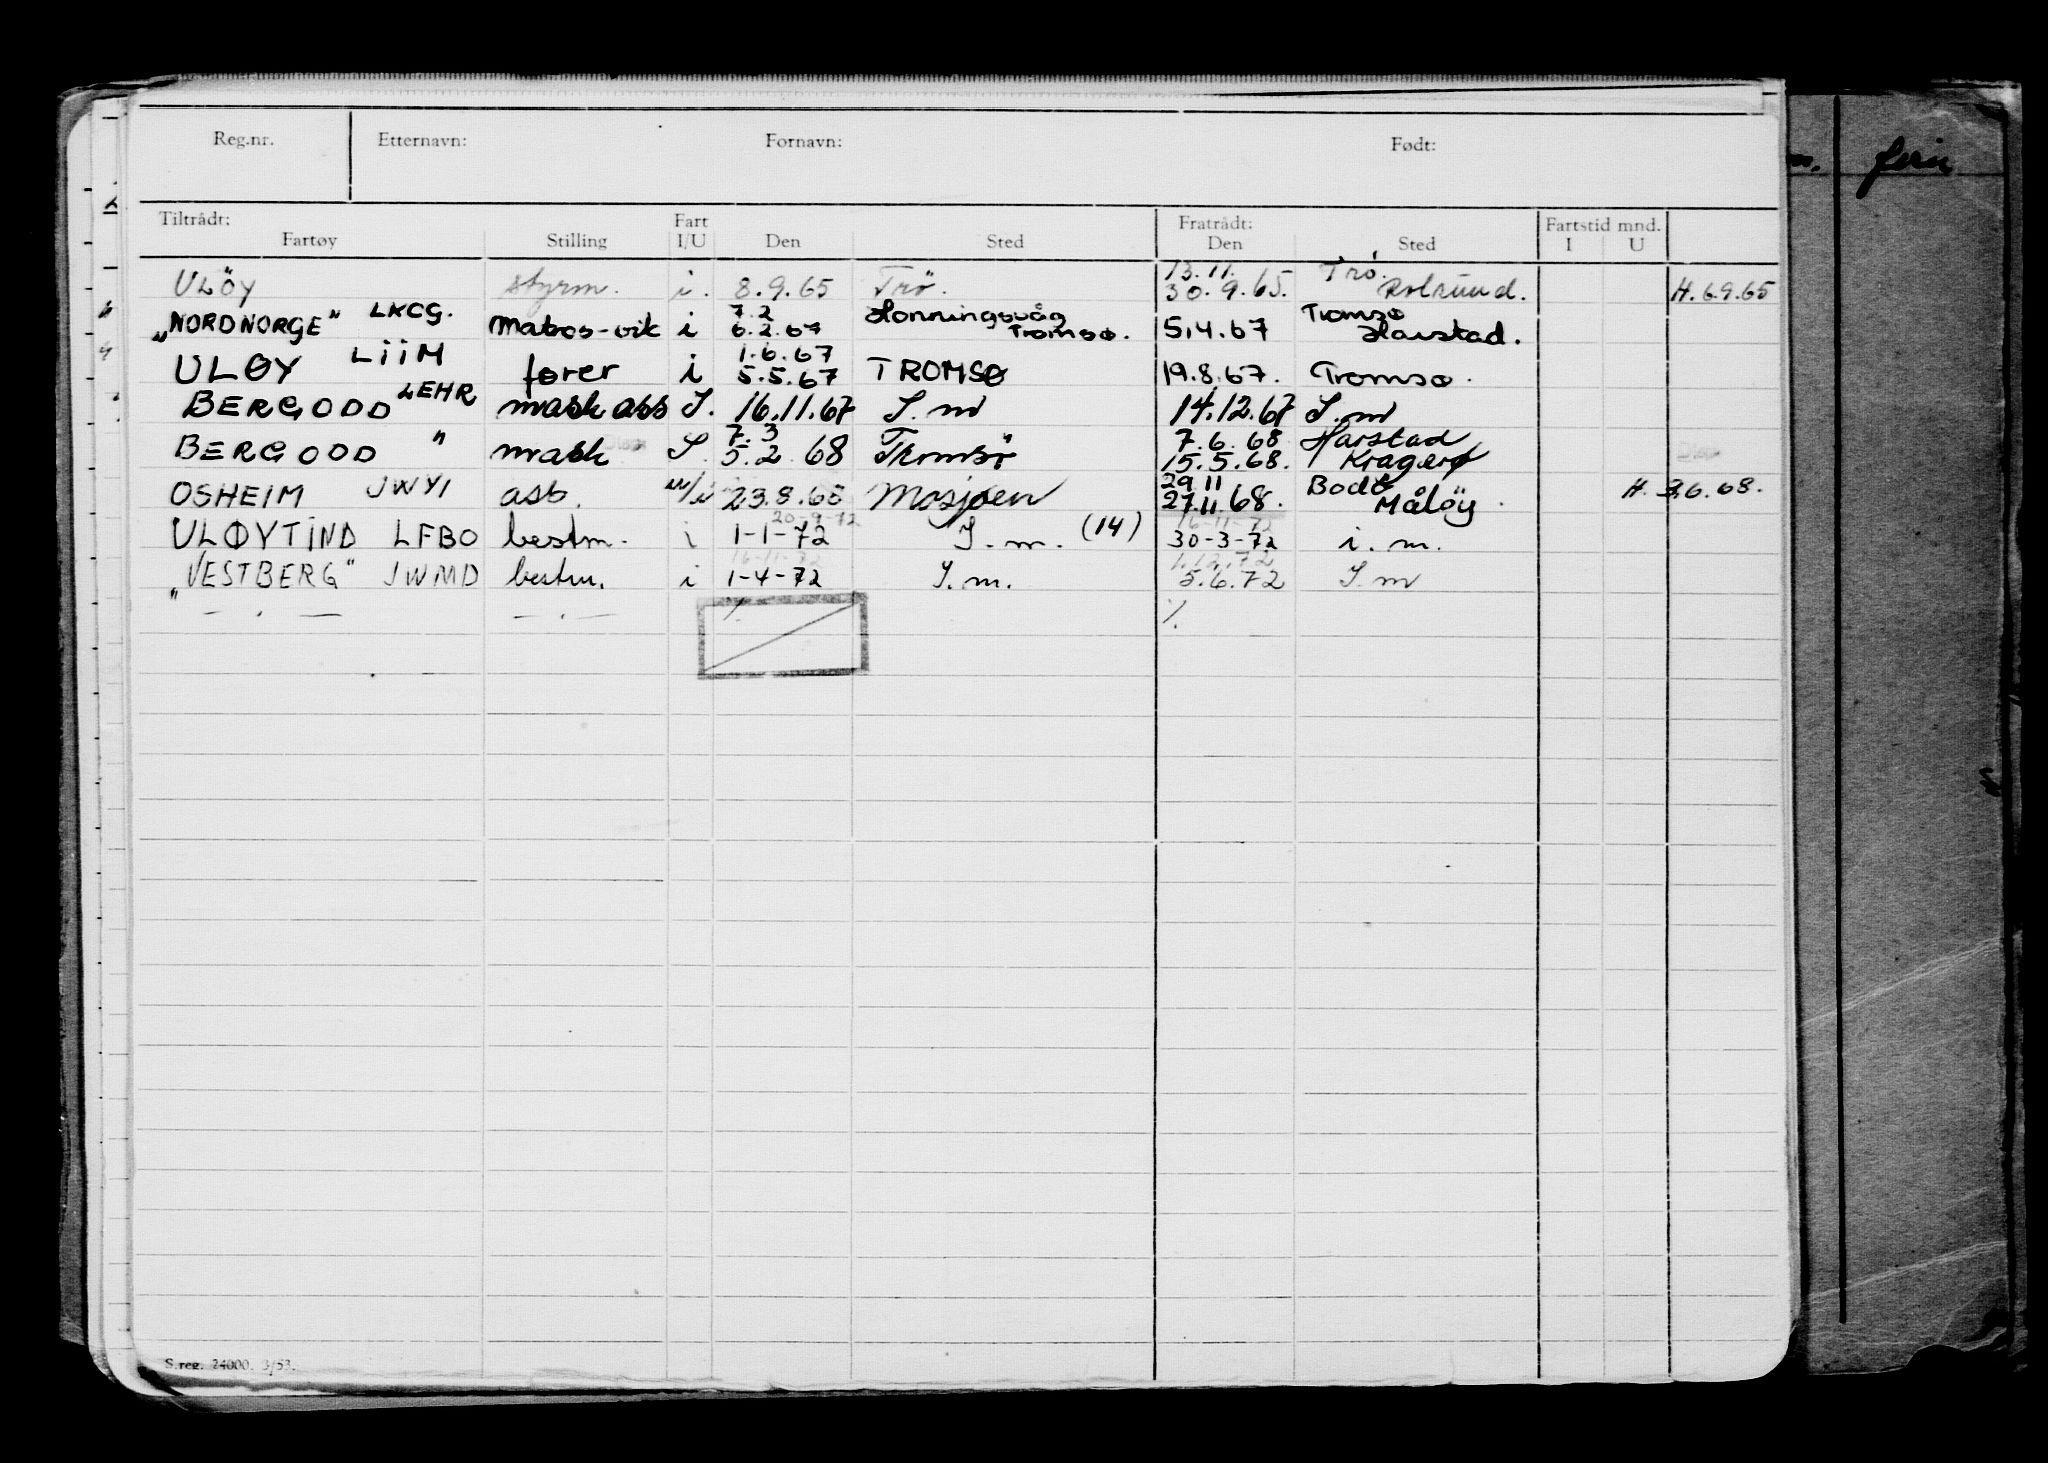 Reg.nr. Etternavn: Fornavn: Født:
Tiltrådt: Fart Fratrådt: Fartstid mnd.
Fartøy Stilling I/U Den Sted Den Sted I U
13.11. Trö.
ULÖY styrm. i. 8.9.65 Trö. 30.9.65. H. 6.9.65
LKCG. 7.2 Honningsvåg Tromsø
"NORDNORGE" Matros-vik i 6.2.67 Tromsø. 5.4.67 Harstad.
LIIM 1.6.67
ULØY fører i 5.5.67 TROMSØ 19.8.67. Tromsø.
BERGODD LEHR mask ass I. 16.11.67 I.m 14.12.67 I.m
7.3 7.6.68 Harstad
BERGODD " mask I. 5.2 68 Tromsö 15.5.68. Kragerø
29 11 Bodø
OSHEIM JWYI ass. u/i 23.8.68 Mosjøen 27.11.68. Måløy. H. 3.6.68.
20-9-72 16-11-72
ULØYTIND LFBO bestm. i 1-1-72 I.m. (14) 30-3-72 i.m.
16-11-72 1.12.72
"VESTBERG" JWMD bestm. i 1-4-72 I.m. 5.6.72 I.m
— . — — . — ⁒ ⁒
S.reg. 24000. 3/53.